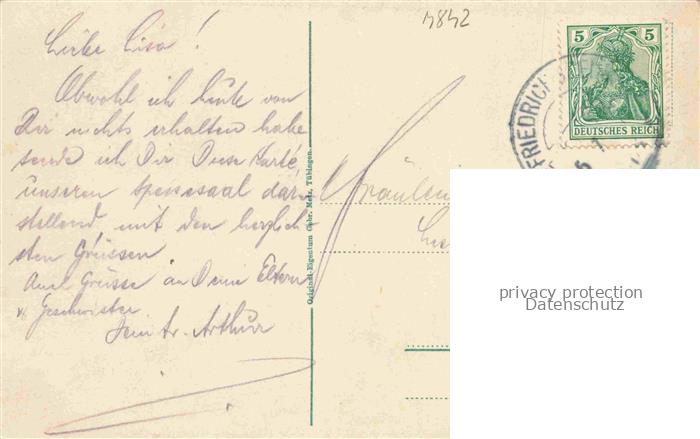 4842
Liebe Lisa!
Obwohl ich heute von
Dir nichts erhalten habe
sende ich Dir Diese Karte
unseren Speisesaal dar-
stellend, mit den herzlich-
sten Grüssen
Auch Grüsse an Deine Eltern
u. Geschwister
Dein tr. Arthur
Original-Eigentum Gebr. Metz, Tübingen.
5 5
DEUTSCHES REICH
FRIEDRICH
Fräulein
privacy protection
Datenschutz